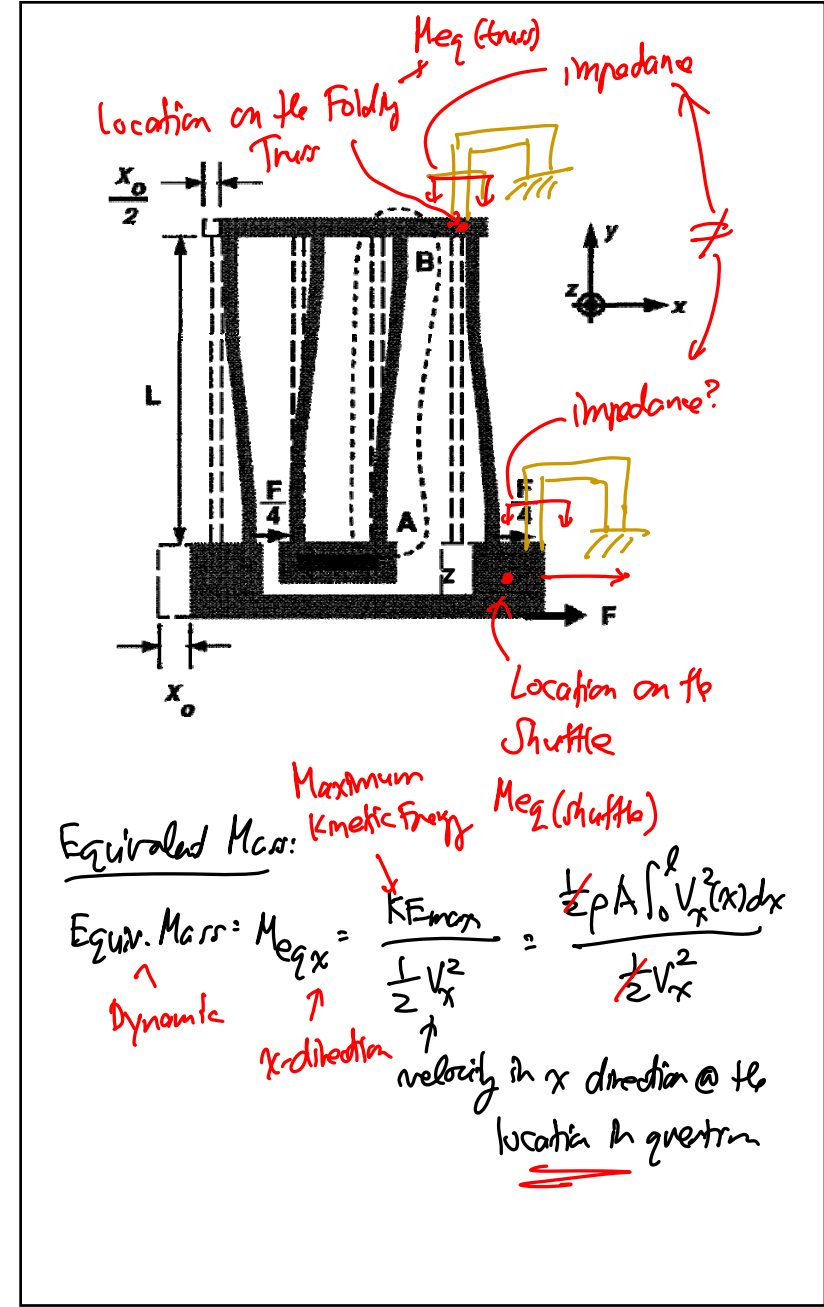 Meq (truss)
impedance
Location on the Folding
Truss
X₀/2
B
y
z
x
L
impedance?
F/4
A
F/4
z
F
X₀
Location on the
Shuttle
Meq (shuttle)
Maximum
Kinetic Energy
Equivalent Mass:
Equiv. Mass = M_eqx = KEmax / (1/2 Vx²) = 1/2 ρA ∫₀^l Vx²(x)dx / (1/2 Vx²)
Dynamic
x-direction
velocity in x direction @ the
location in question